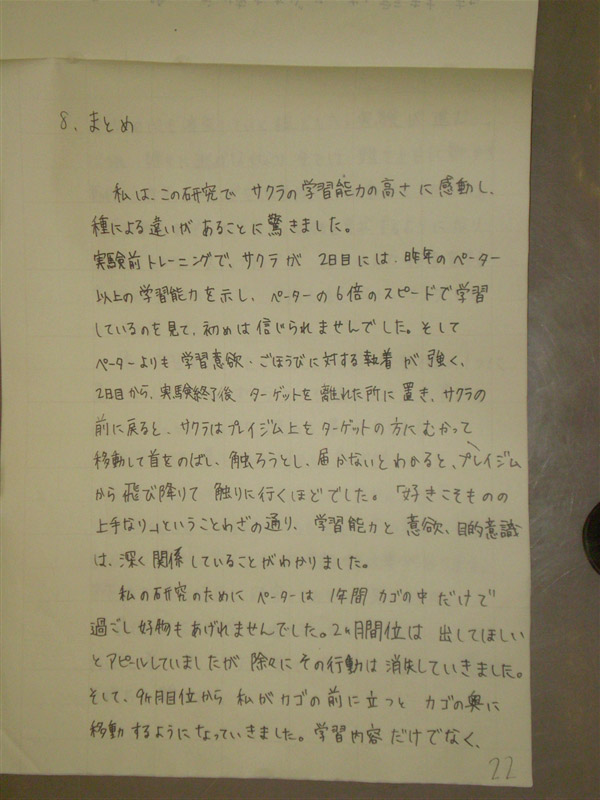 8、まとめ
私は、この研究で サクラの学習能力の高さに感動し、
種による違いがあることに驚きました。
実験前トレーニングで、サクラが 2日目には、昨年のペーター
以上の学習能力を示し、ペーターの6倍のスピードで学習
しているのを見て、初めは信じられませんでした。そして
ペーターよりも 学習意欲・ごほうびに対する執着が強く、
2日目から、実験終了後 ターゲットを離れた所に置き、サクラの
前に戻ると、サクラはプレイジム上をターゲットの方にむかって
移動して首をのばし、触ろうとし、届かないとわかると、プレイジム
から飛び降りて 触りに行くほどでした。「好きこそものの
上手なり」ということわざの通り、学習能力と意欲、目的意識
は、深く関係していることがわかりました。
私の研究のために ペーターは 1年間 カゴの中だけで
過ごし好物もあげれませんでした。2ヶ月間位は 出してほしい
とアピールしていましたが 除々に その行動は 消失していきました。
そして、9ヶ月目位から 私がカゴの前に立つと カゴの奥に
移動するようになっていきました。学習内容だけでなく、
22